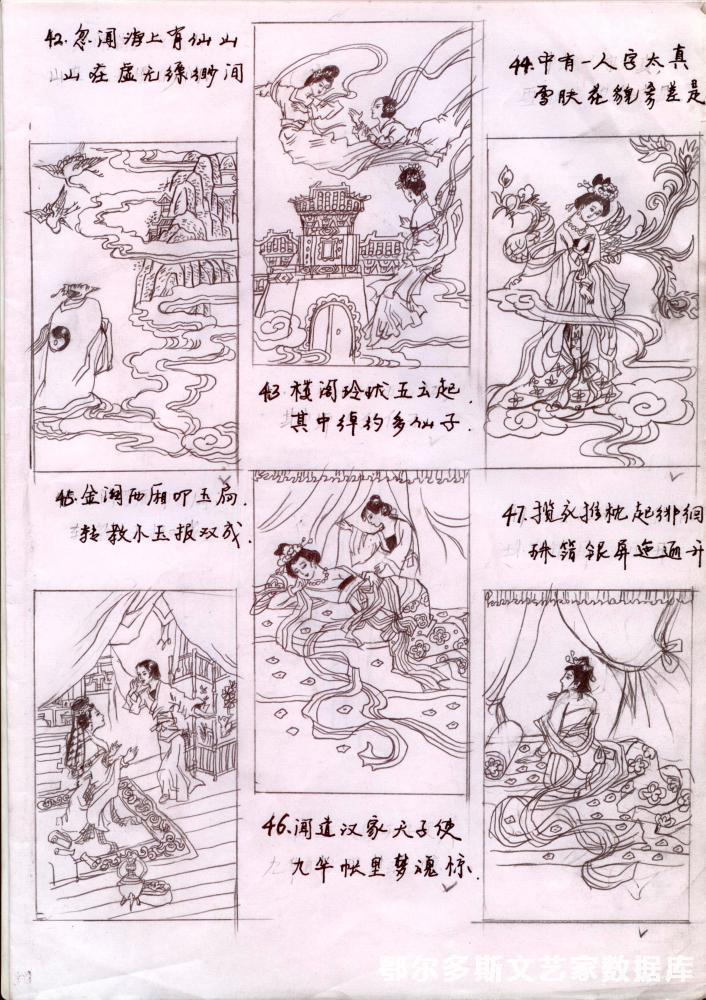 42.忽闻海上有仙山
山在虚无缥缈间
43.楼阁玲珑五云起.
其中绰约多仙子.
44.中有一人字太真
雪肤花貌参差是
45.金阙西厢叩玉扃
转教小玉报双成.
46.闻道汉家天子使
九华帐里梦魂惊.
47.揽衣推枕起徘徊
珠箔银屏迤逦开
鄂尔多斯文艺家数据库